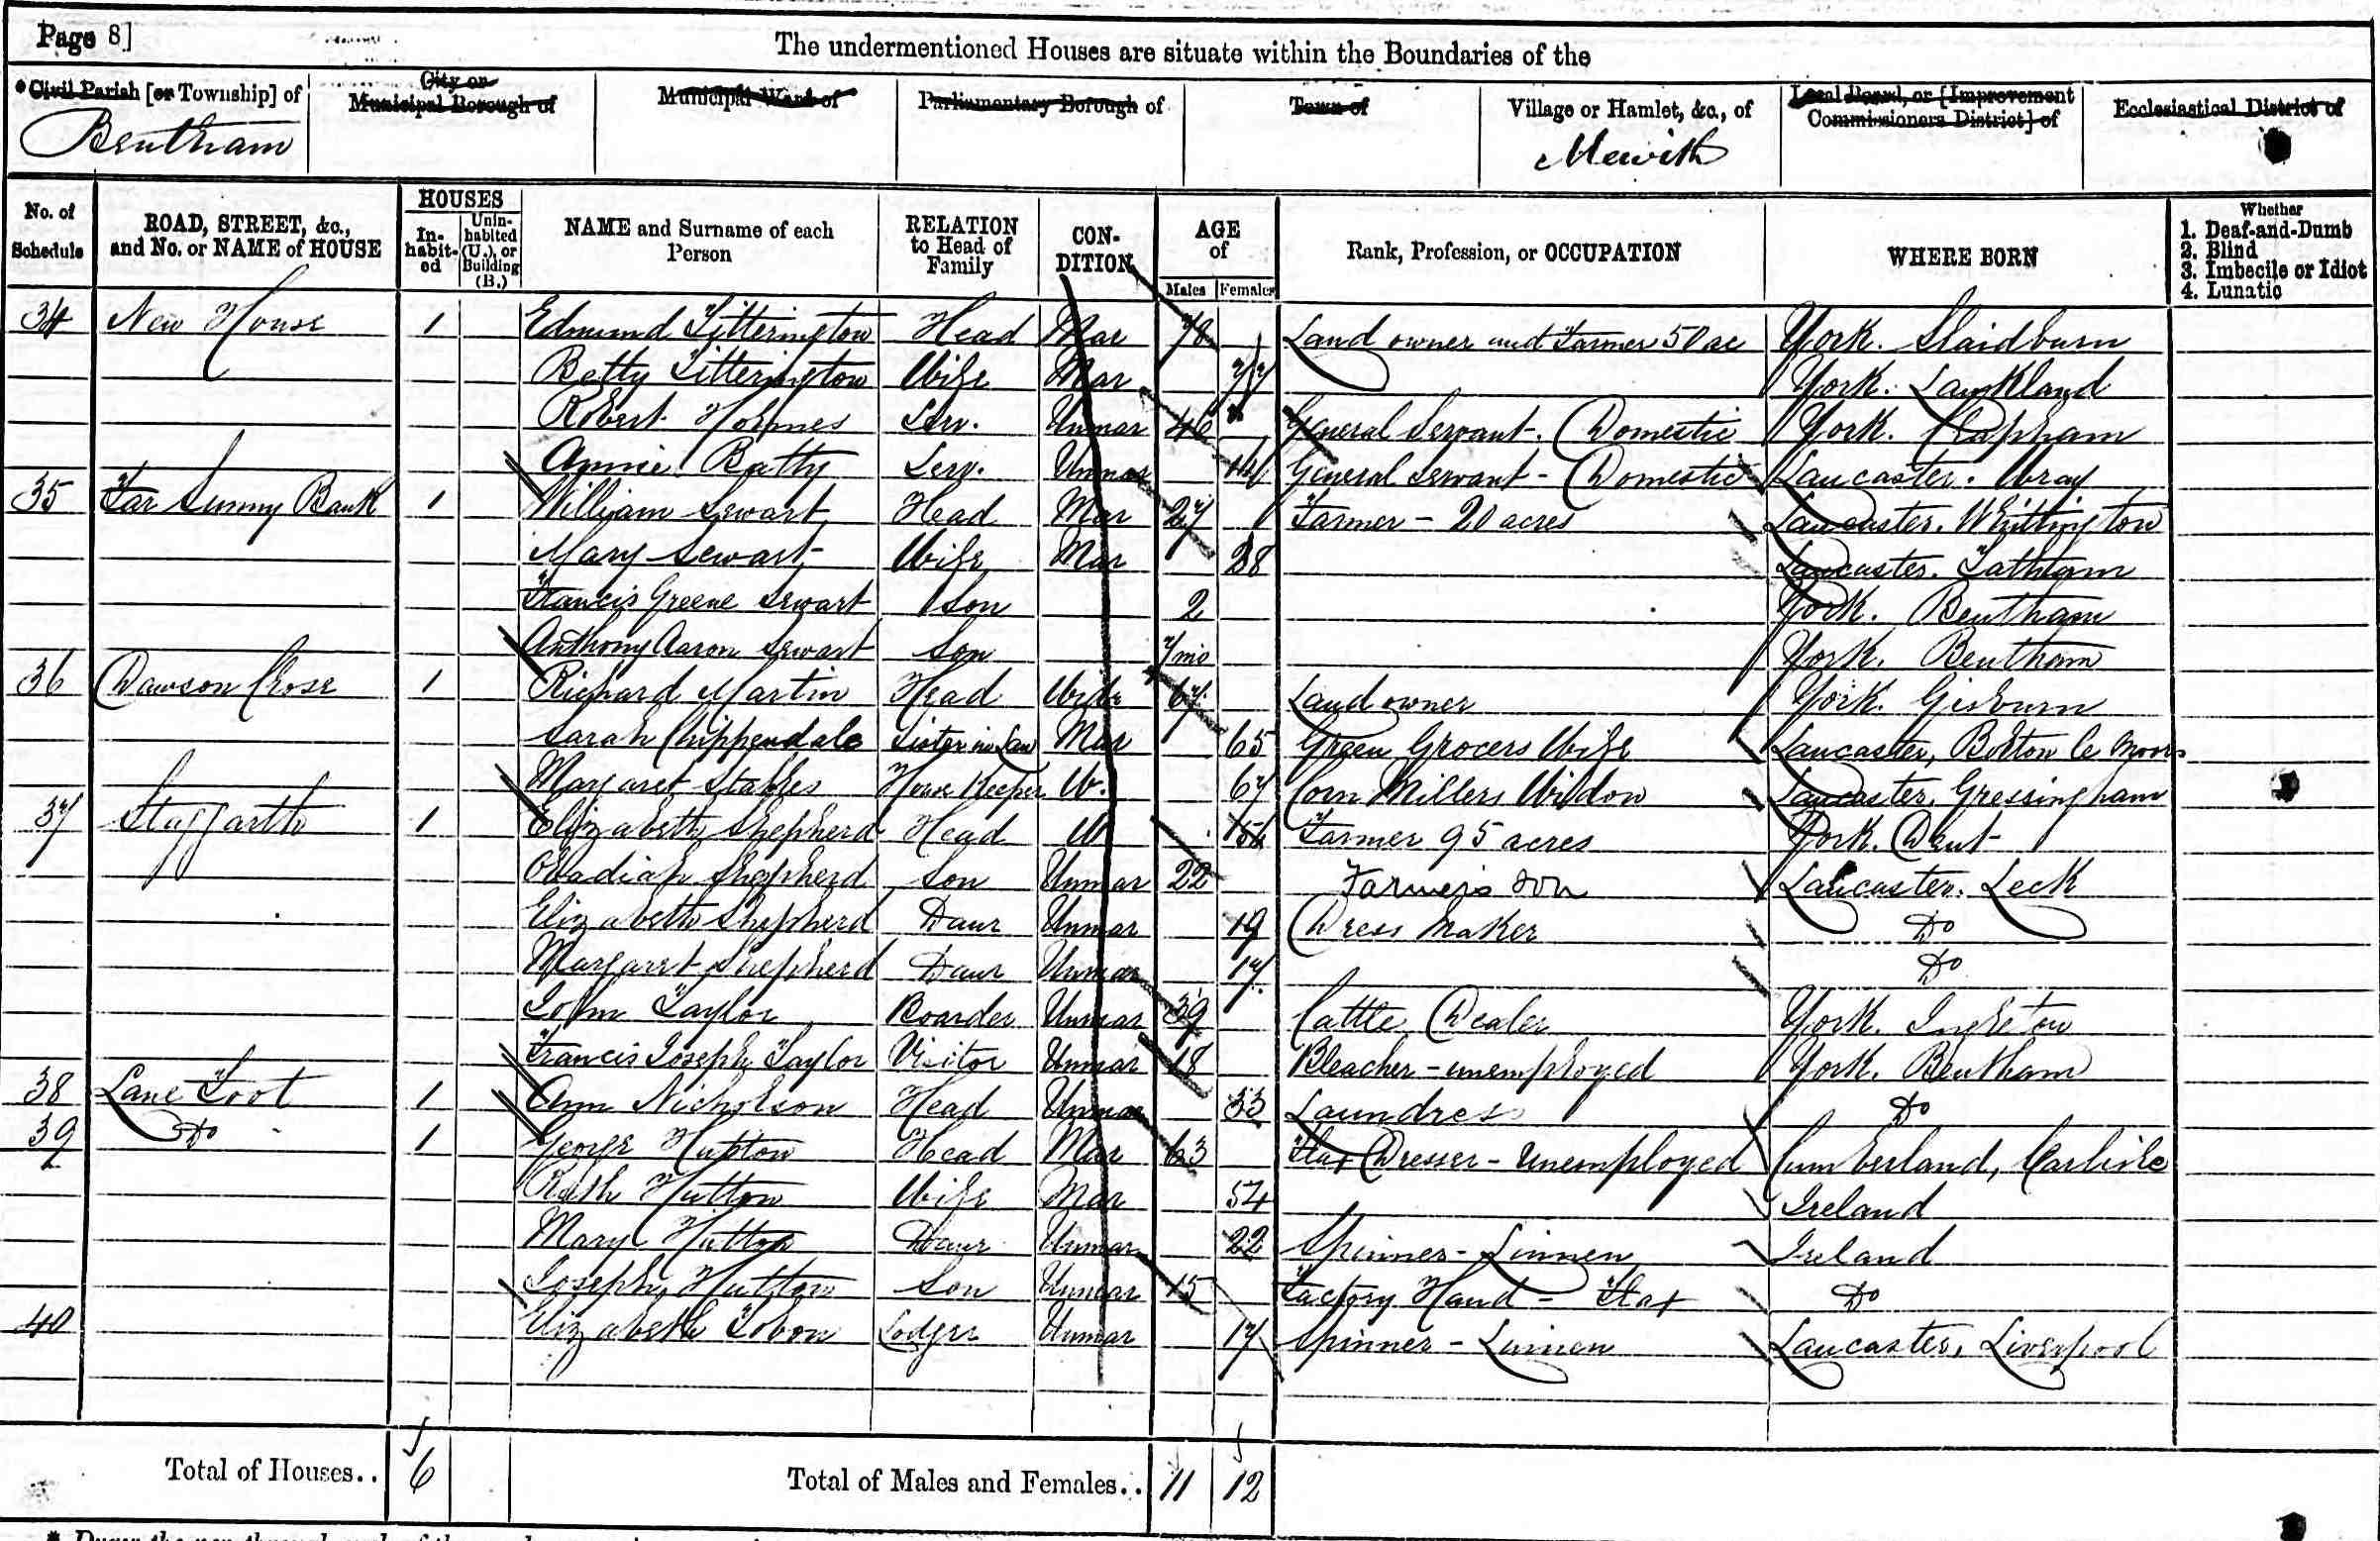 Page 8]
The undermentioned Houses are situate within the Boundaries of the
Civil Parish [or Township] of
City or Municipal Borough of
Municipal Ward of
Parliamentary Borough of
Town of
Village or Hamlet, &c., of
Local Board, or [Improvement Commissioners District] of
Ecclesiastical District of
Bentham
Mewith
No. of Schedule
ROAD, STREET, &c., and No. or NAME of HOUSE
HOUSES
In-habit-ed
Unin-habited (U.), or Building (B.)
NAME and Surname of each Person
RELATION to Head of Family
CON-DITION
AGE of
Males Females
Rank, Profession, or OCCUPATION
WHERE BORN
Whether
1. Deaf-and-Dumb
2. Blind
3. Imbecile or Idiot
4. Lunatic
34 New House 1 Edmund Titterington Head Mar 78 Land owner and Farmer 50 ac York. Slaidburn
Betty Titterington Wife Mar 77 York. Lawkland
Robert Holmes Serv. Unmar 46 General Servant. Domestic York. Clapham
Annie Batty Serv. Unmar 14 General Servant - Domestic Lancaster. Wray
35 Far Sunny Bank 1 William Sewart Head Mar 27 Farmer - 20 acres Lancaster. Whittington
Mary Sewart Wife Mar 28 Lancaster. Tatham
Francis Greene Sewart Son 2 York. Bentham
Anthony Aaron Sewart Son 7 mo York. Bentham
36 Dawson Close 1 Richard Martin Head Widr 67 Land owner York. Gisburn
Sarah Chippendale Sister in Law Mar 65 Green Grocers Wife Lancaster, Bolton le Moors
Margaret Stables House Keeper W. 67 Corn Millers Widow Lancaster, Gressingham
37 Staggarth 1 Elizabeth Shepherd Head W 54 Farmer 95 acres York. Dent
Obadiah Shepherd Son Unmar 22 Farmer's Son Lancaster. Leck
Elizabeth Shepherd Daur Unmar 19 Dress Maker Do
Margaret Shepherd Daur Unmar 17 Do
John Taylor Boarder Unmar 39 Cattle Dealer York. Ingleton
Francis Joseph Taylor Visitor Unmar 18 Bleacher - unemployed York. Bentham
38 Lane Foot 1 Ann Nicholson Head Unmar 33 Laundress Do
39 Do 1 George Hutton Head Mar 63 Flax Dresser - Unemployed Cumberland, Carlisle
Ruth Hutton Wife Mar 54 Ireland
Mary Hutton Daur Unmar 22 Spinner - Linnen Ireland
Joseph Hutton Son Unmar 15 Factory Hand - Flax Do
40 Elizabeth Lodger Unmar 17 Spinner - Linnen Lancaster, Liverpool
Total of Houses.. 6 Total of Males and Females.. 11 12